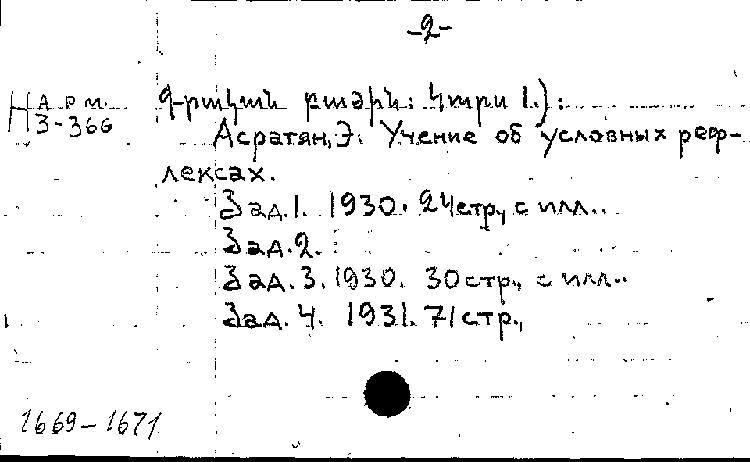 -2-
АРМ.
3-366
գրական բաժին: Կտրս 1.):
Асратян, Э. Учение об условных реф-
лексах.
Зад.1. 1930. 24стр., с илл..
Зад.2.
Зад.3. 1930. 30стр., с илл..
Зад.4. 1931. 71стр.,
1669-1671